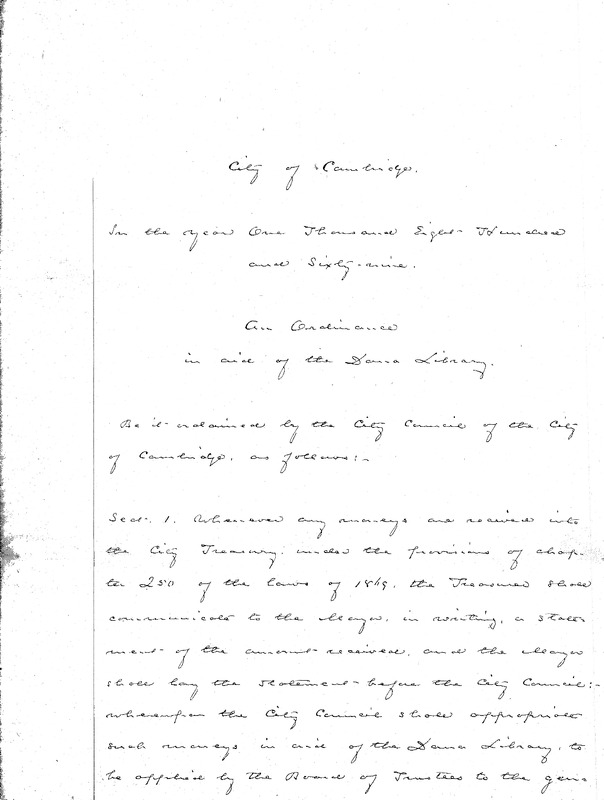 City of Cambridge.
In the year One Thousand Eight Hundred
and Sixty-nine.
An Ordinance
in aid of the Dana Library.
Be it ordained by the City Council of the City
of Cambridge, as follows:-
Sect. 1. Whenever any moneys are received into
the City Treasury, under the provisions of chap-
ter 250 of the laws of 1869, the Treasurer shall
communicate to the Mayor, in writing, a state-
ment of the amount received, and the Mayor
shall lay the statement before the City Council:-
whereupon the City Council shall appropriate
such moneys in aid of the Dana Library, to
be applied by the Board of Trustees to the gen-